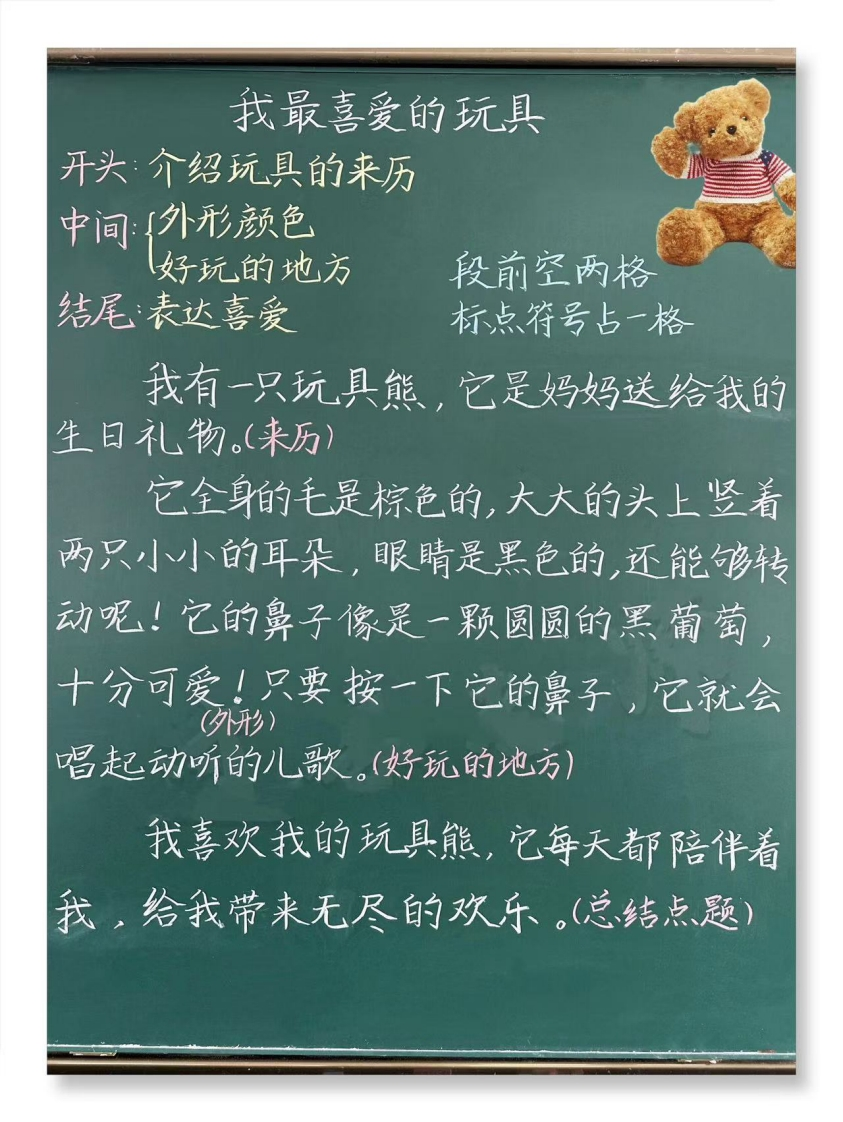 我最喜爱的玩具
开头:介绍玩具的来历
中间:{外形颜色
好玩的地方
段前空两格
结尾:表达喜爱
标点符号占一格
我有一只玩具熊,它是妈妈送给我的
生日礼物。(来历)
它全身的毛是棕色的,大大的头上竖着
两只小小的耳朵,眼睛是黑色的,还能够转
动呢!它的鼻子像是一颗圆圆的黑葡萄,
十分可爱!只要按一下它的鼻子,它就会
(外形)
唱起动听的儿歌。(好玩的地方)
我喜欢我的玩具熊,它每天都陪伴着
我,给我带来无尽的欢乐。(总结点题)